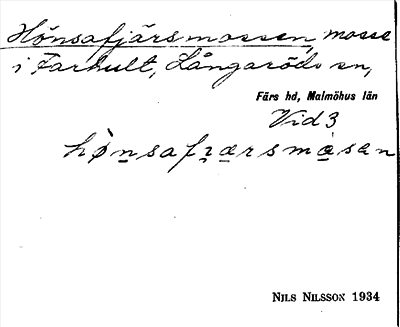 Hönsafjärsmossen, mosse
i Farhult, Långaröds sn,
Färs hd, Malmöhus län
Vid 3
hø̀nsafjærsmåsen
NILS NILSSON 1934